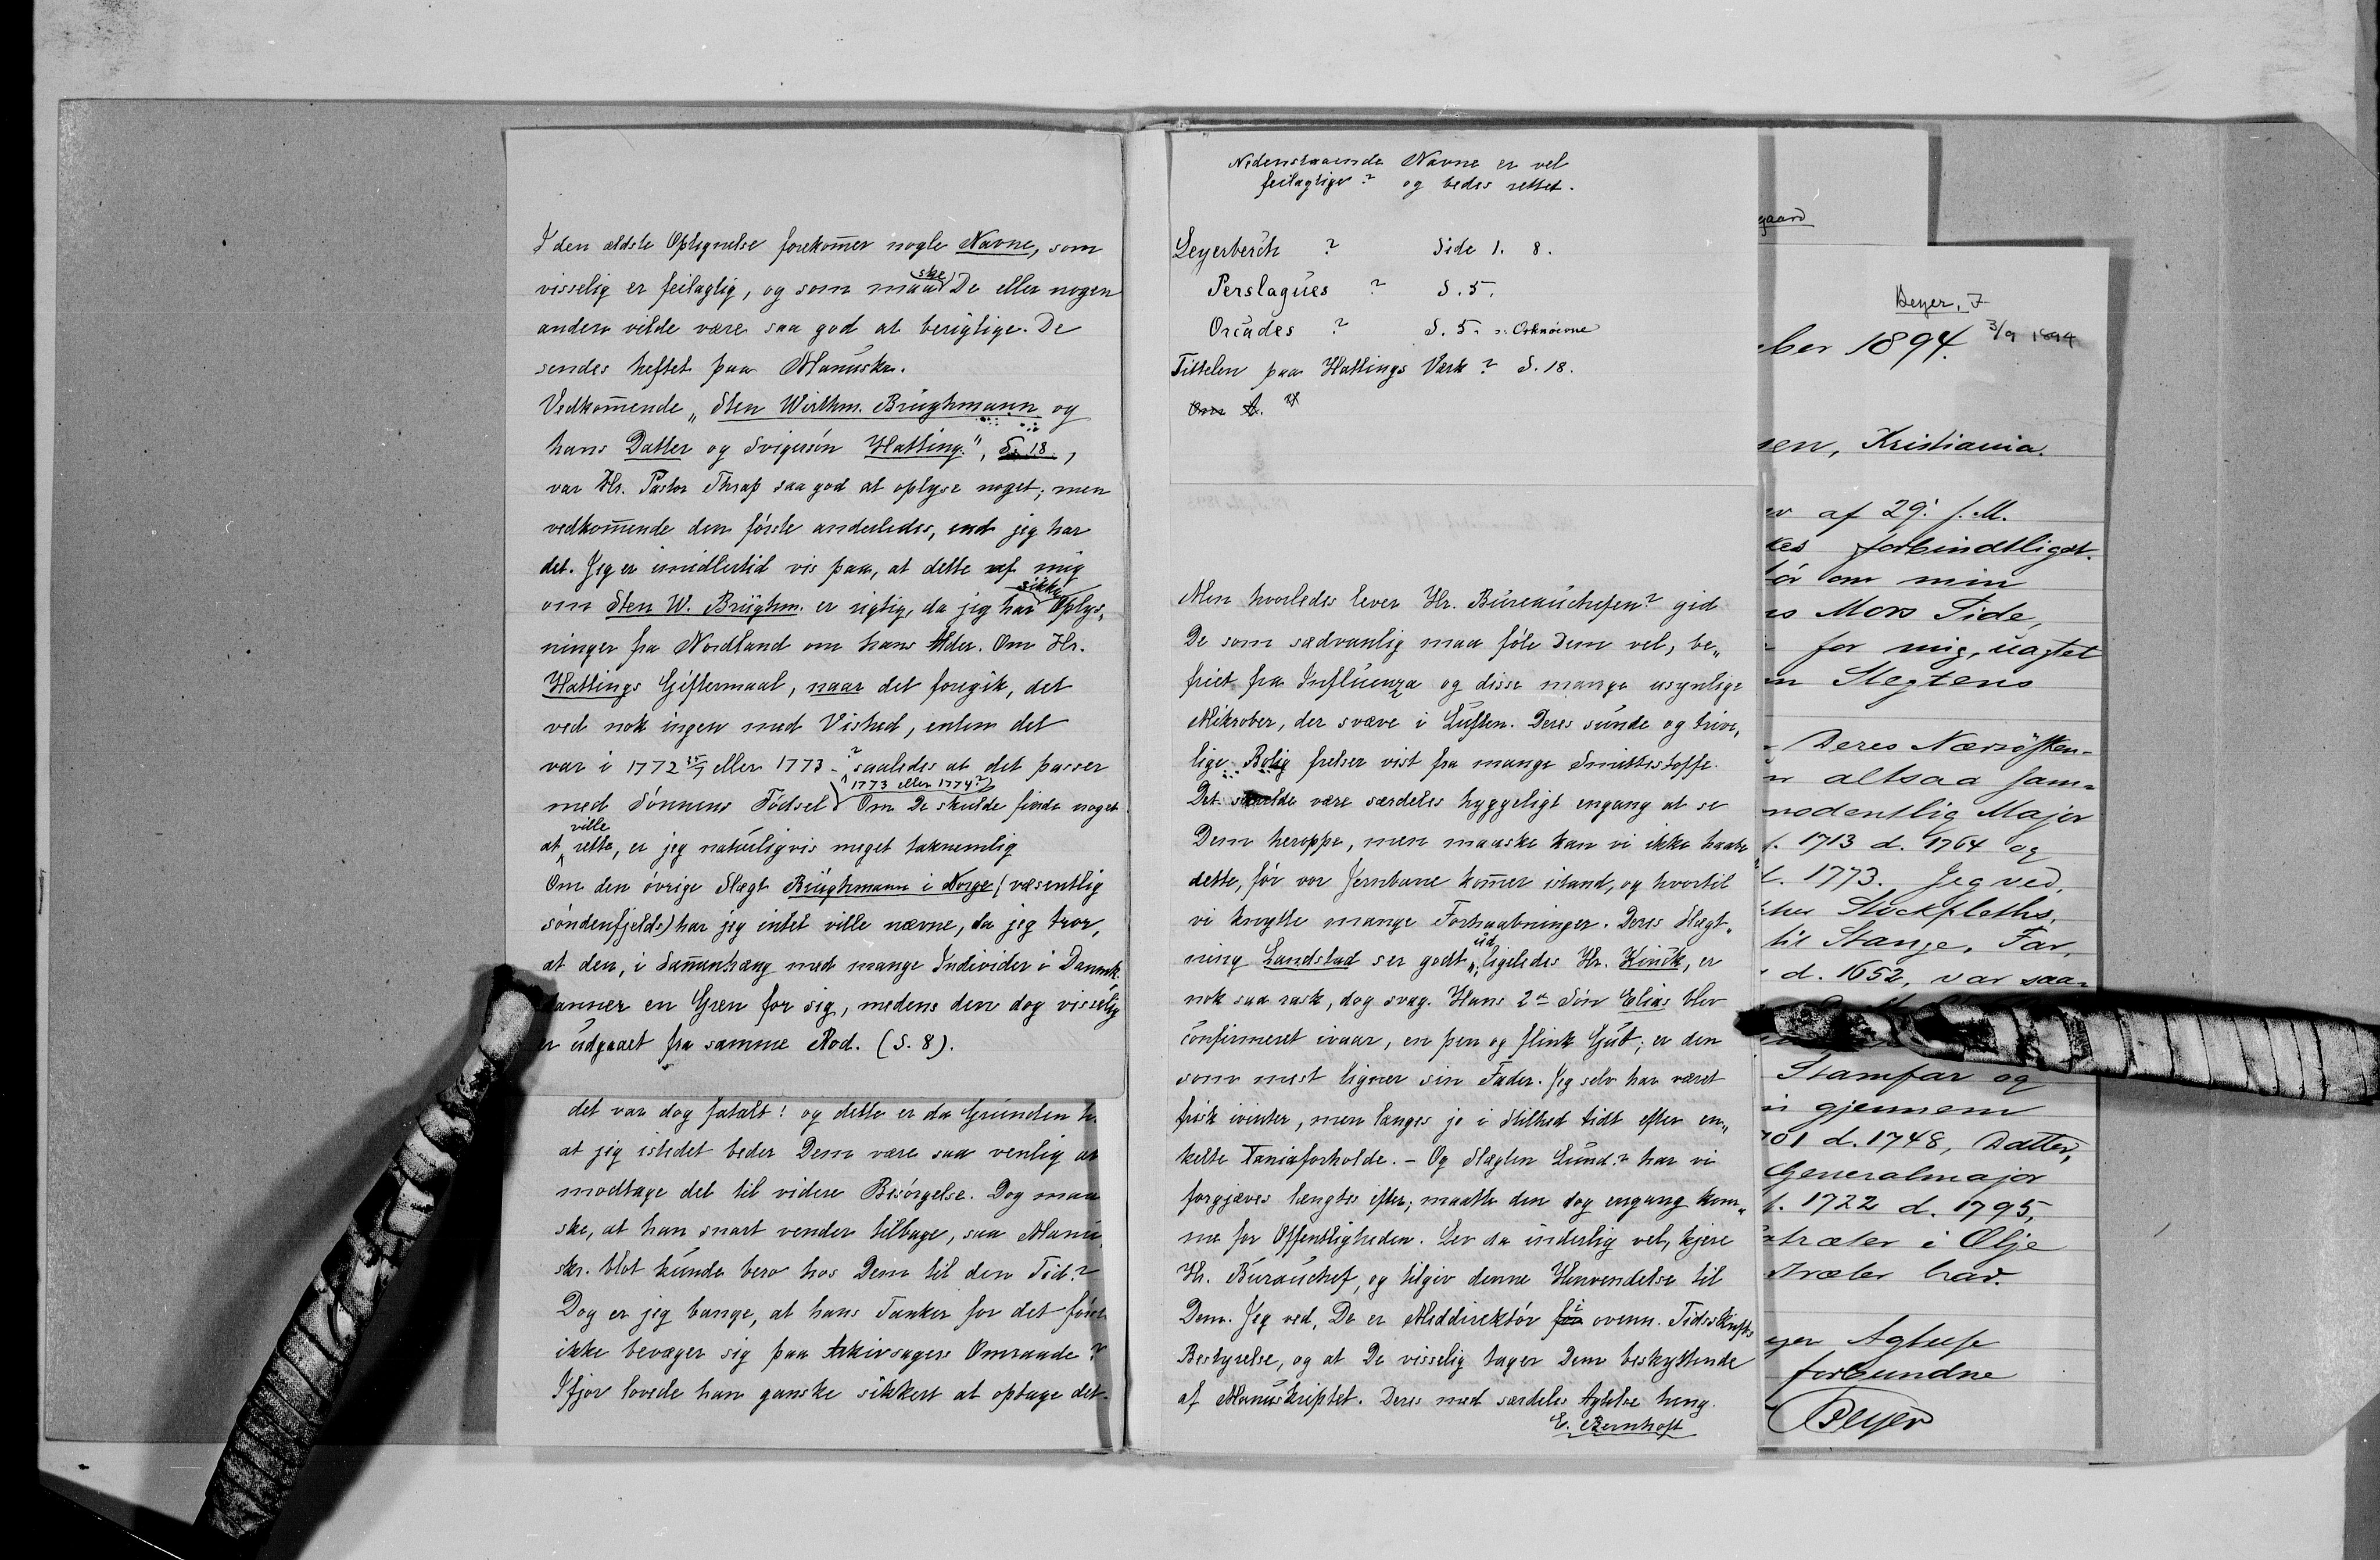 I den ældste Optegnelse forekom̄er nogle Navne, som
visselig er feilagtig, og som maaske De eller nogen
anden vilde være saa god at berigtige. De
sendes heftet paa Manuskr.
Vedkom̄ende „Sten Wirthm. Brüghmann og
hans Datter og Svigersøn Hatting.", S. 18.,
var Hr. Pastor Thrap saa god at oplyse noget; men
vedkom̄ende den første anderledes, end jeg har
det. Jeg er imidlertid vis paa, at dette af mig
om Sten W. Brüghm. er rigtig, da jeg har sikkre Oplys„
ninger fra Nordland om hans Alder. Om Hr.
Hattings Giftermaal, naar det foregik, det
ved nok ingen med Vished, enten det
var i 1772 eller 1773 - ? saaledes at det passer
med Sønnens Fødsel 1773 eller 1774? Om De skulde finde noget
at ville rette, er jeg naturligvis meget taknemlig
Om den øvrige Slægt Brüghmann i Norge (væsentlig
søndenfjelds) har jeg intet ville nævne, da jeg tror,
at den, i Sam̄enhæng med mange Individer i Danmk.
danner en Gren for sig, medens den dog visselig
er udgaaet fra samme Rod. (S. 8).
det var dog fatalt! og dette er da Grunden t.
at jeg istedet beder Dem være saa venlig at
modtage det til videre Besørgelse. Dog maa
ske, at han snart vender tilbage, saa Manu„
skr. blot kunde bero hos Dem til den Tid?
Dog er jeg bange, at hans Tanker for det første
ikke bevæger sig paa Arkivsagers Omraade?
Ifjor lovede han ganske sikkert at optage det.
Nedenstaaende Navne er vel
feilagtige? og bedes rettet.
Leyerberch ? Side 1. 8.
Perslagues ? S. 5.
Orcades ? S. 5. ɔ: Orknøerne
Tittelen paa Hattings Værk? S. 18.
Men hvorledes lever Hr. Bureauchefen? gid
De som sædvanlig maa føle Dem vel, be„
friet fra Influenza og disse mange usynlige
Mikrober, der svæve i Luften. Deres sunde og trive„
lige Bolig frelser vist fra mange Smittestoffe.
Det skulde være særdeles hyggeligt engang at se
Dem heroppe, men maaske kan vi ikke haabe
dette, før vor Jernbane kom̄er istand, og hvortil
vi knytte mange Forhaabninger. Deres Slægt„
ning Landstad ser godt ud, ligeledes Hr. Kinck, er
nok saa rask, dog svag. Hans 2den Søn Elias blev
confirmeret ivaar, en pen og flink Gut; er den
som mest ligner sin Fader. Jeg selv har været
frisk ivinter, men længes jo i Stilhed tidt efter en„
kelte Taniaforholde. – Og Slægten Lund? har vi
forgjæves længtes efter; maatte den dog engang kom„
me for Offentligheden. Lev da inderlig vel, kjere
Hr. Burauchef, og tilgiv denne Henvendelse til
Dem. Jeg ved, De er Meddirektør for i ovenn. Tidsskrifts
Bestyrelse, og at De visselig tager Dem beskyttende
af Manuskriptet. Deres med særdeles Agtelse heng.
E. Bernhoft
gaard
Beyer, F
3/9 1894
ber 1894.
sen, Kristiania.
ev af 29. f. M.
kes forbindtligst.
ør om min
s Mors Side,
for mig, uagtet
n Slegtens
Deres Nærsøsken-
n altsaa sam-
modentlig Major
f. 1713 d. 1764 og
f. 1773. Jeg ved,
Stockfleths,
til Stange. Far,
d. 1652, var saa-
Stamfar og
gjennem
701 d. 1748, Datter,
Generalmajor
f. 1722 d. 1795,
træter i Olje
træter har.
yer Agtelse
forbundne
FBeyer